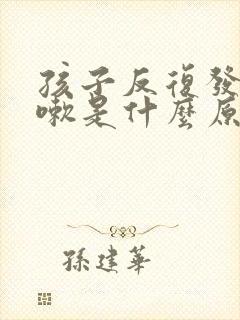 孩子反復發
嗽是什麽原
孫建華